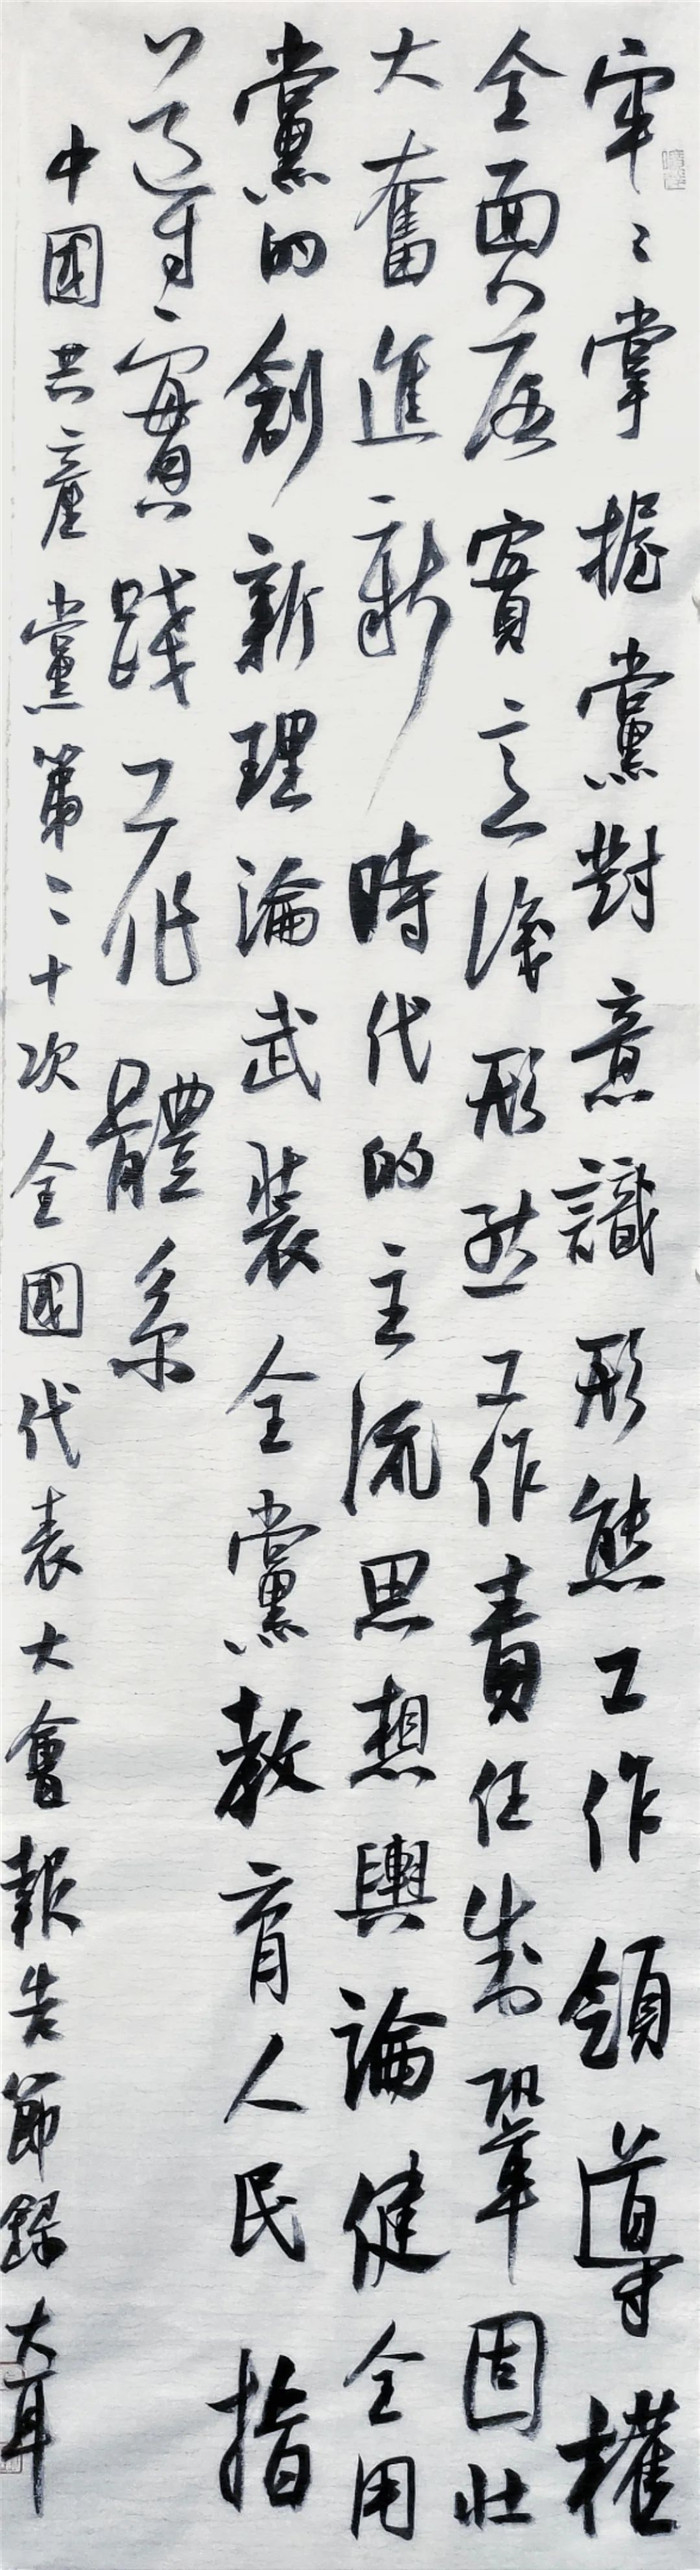 牢〻掌握黨對意識形態工作領導權
全面落實意識形態工作責任制鞏固壯
大奮進新時代的主流思想輿論健全用
黨的創新理論武裝全黨教育人民指
導實踐工作體系
中國共產黨第二十次全國代表大會報告節錄大耳